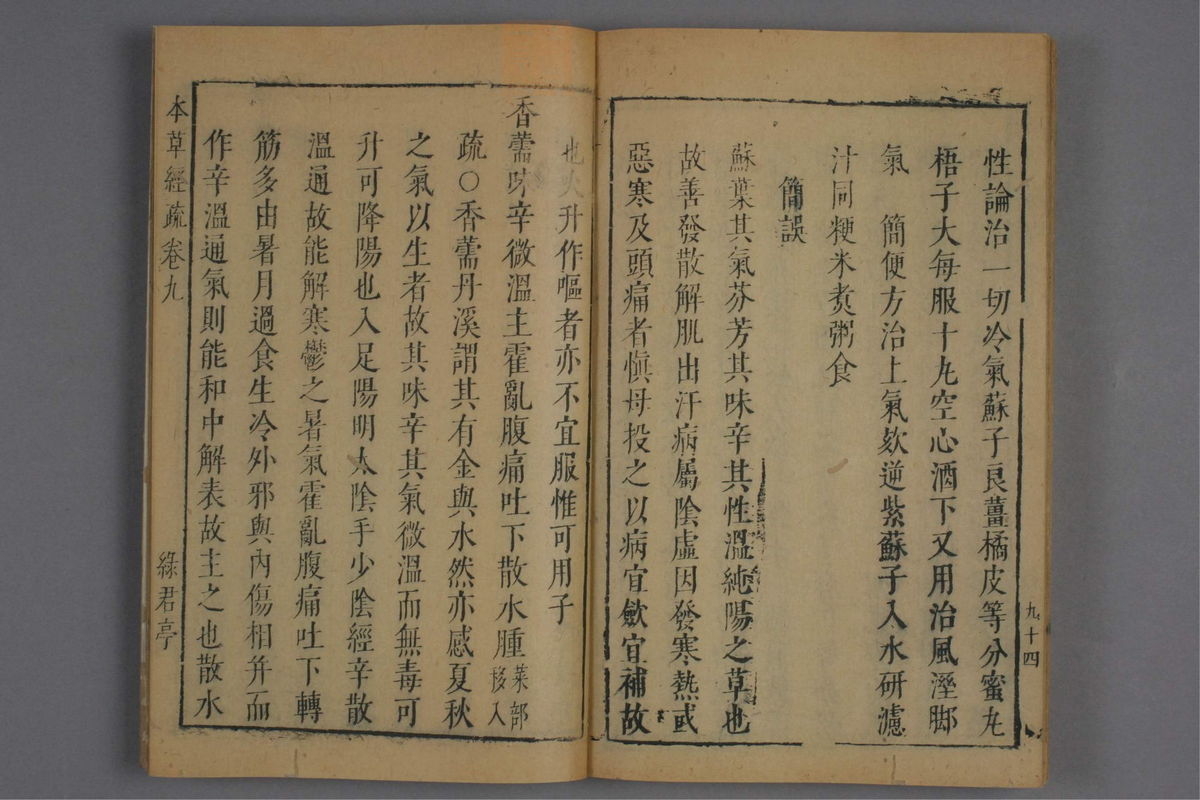 性論治一切冷氣蘇子良薑橘皮等分蜜丸
梧子大每服十丸空心酒下又用治風溼脚
氣　簡便方治上氣欬逆紫蘇子入水研濾
汁同粳米煑粥食
簡誤
蘇葉其氣芬芳其味辛其性溫純陽之草也
故善發散解肌出汗病屬陰虛因發寒熱或
惡寒及頭痛者慎毋投之以病宜斂宜補故
九十四
也火升作嘔者亦不宜服惟可用子
香薷味辛微溫主霍亂腹痛吐下散水腫菜部移入
疏○香薷丹溪謂其有金與水然亦感夏秋
之氣以生者故其味辛其氣微溫而無毒可
升可降陽也入足陽明太陰手少陰經辛散
溫通故能解寒鬱之暑氣霍亂腹痛吐下轉
筋多由暑月過食生冷外邪與內傷相幷而
作辛溫通氣則能和中解表故主之也散水
本草經疏卷九
綠君亭